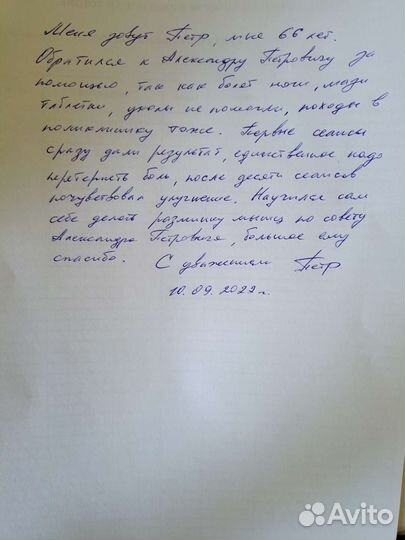 Меня зовут Петр, мне 66 лет.
Обратился к Александру Петровичу за
помощью, так как болят ноги, мази
таблетки, уколы не помогли, походы в
поликлинику тоже. Первые сеансы
сразу дали результат, единственное надо
перетерпеть боль, после десяти сеансов
почувствовал улучшение. Научился сам
себе делать разминку мышц по совету
Александра Петровича, большое ему
спасибо. С уважением Петр
10.09.2022г.
Avito